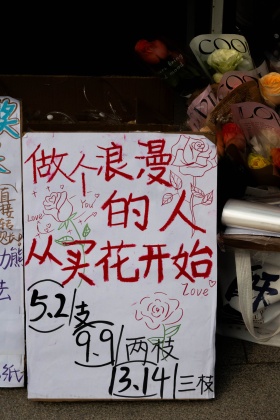 做个浪漫
的人
从买花开始
Love
You
love
5.2/支
9.9/两枝
13.14/三枝
COOL